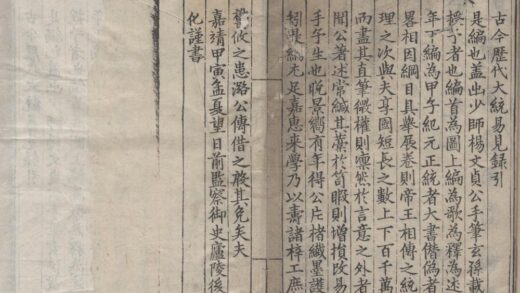 古今歷代大統易見録引
是編也盖出少師楊文貞公手筆玄孫載
者也編首為圖上編為歌為釋為述
年下編為甲午紀元正統者大書僭偽者
畧相因綱目具舉展卷則帝王相傳之統
理之次與夫享國短長之數上下百千萬
而盡其直筆微權則凛然於言意之外者
聞公著述常緘其藁於笥暇則增損攺易
手午生也晚景嚮有年得公片楮纎墨護
矧是編尤足嘉恵来學乃以壽諸梓工庶
攸之患潞公傳借之敝其免矣夫
嘉靖甲寅孟夏望日前監察御史廬陵後
化謹書